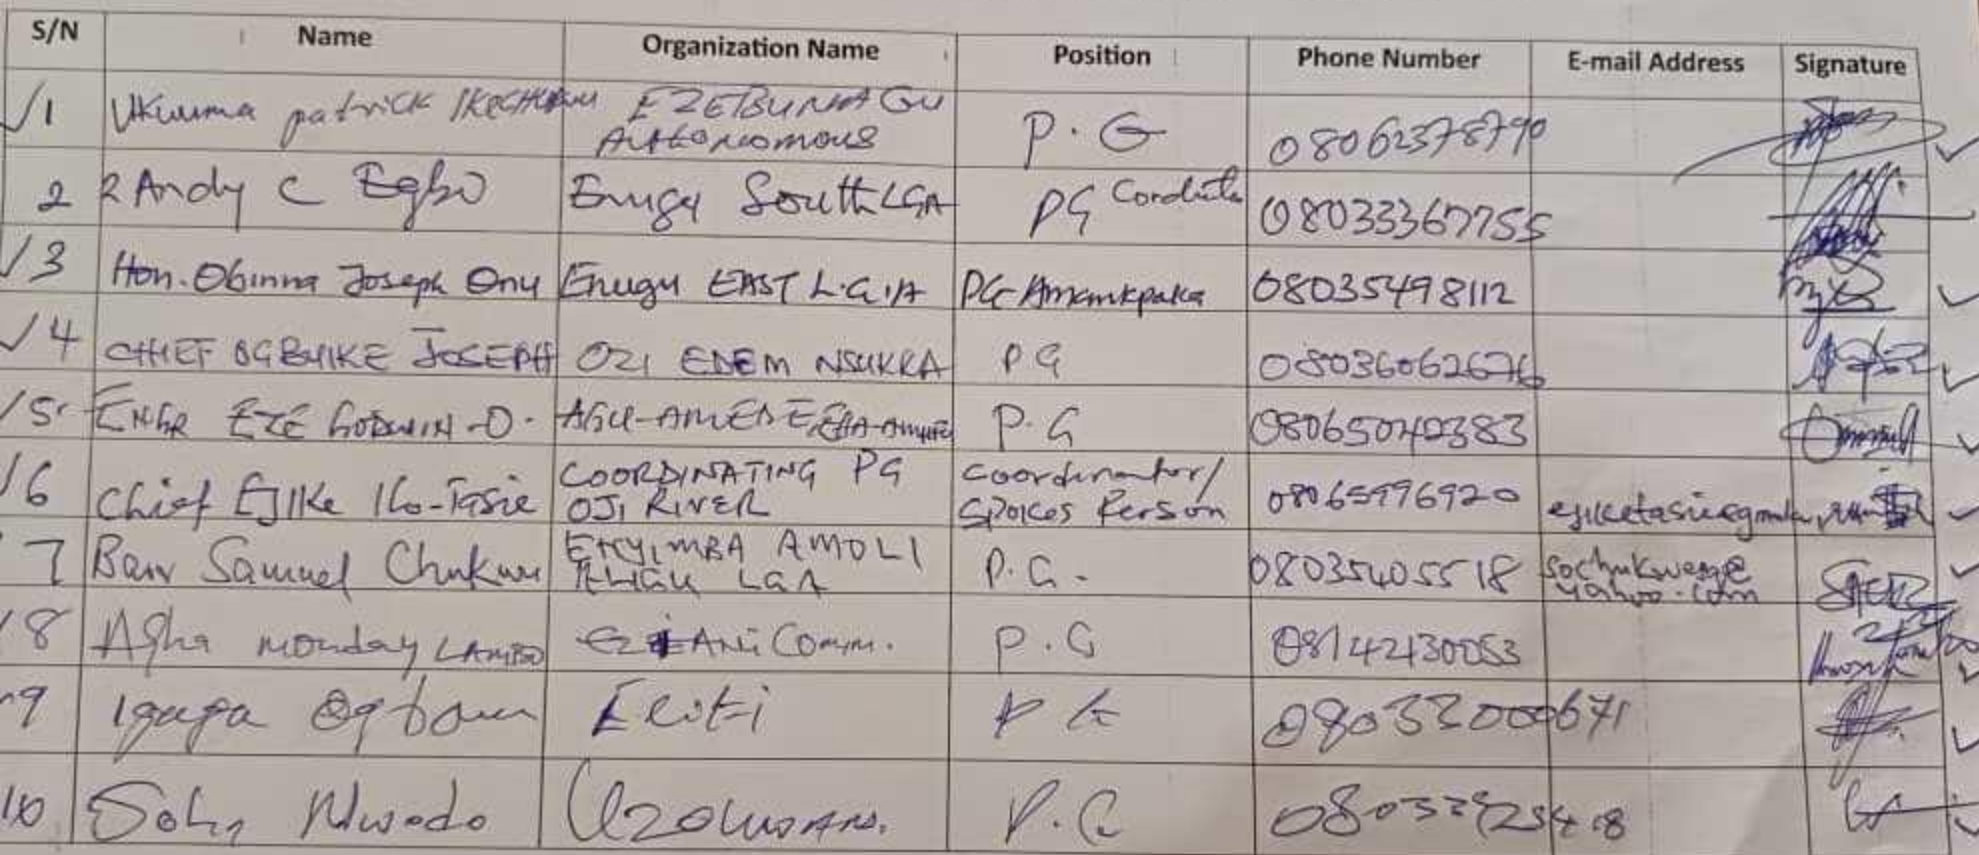 S/N Name Organization Name Position Phone Number E-mail Address Signature
1 Ukwuma patrick IKECHUKWU EZEBUNAGU AUTONOMOUS P.G 08062378790
2 Andy C Egbo Enugu South LGA PG 08033367755
3 Hon. Obinna Joseph Onu Enugu EAST L.G.A PG Amankpaka 08035498112
4 CHIEF OGBUIKE JOSEPH OZI EDEM NSUKKA PG 08036062676
5 ENGR EZE GODWIN O. AGU-AMEDE P.G 08065040383
6 Chief EJIKE Ilo-Tasie COORDINATING PG OJI RIVER Coordinator/ Spokes Person 08065996920
7 Barr Samuel Chukwu AMOLI LGA P.G. 08035405518 yahoo.com
8 Agha Monday LAMBO Ani Comm. P.G 08142130053
9 P G 08033000671
10 John Nwodo P.G